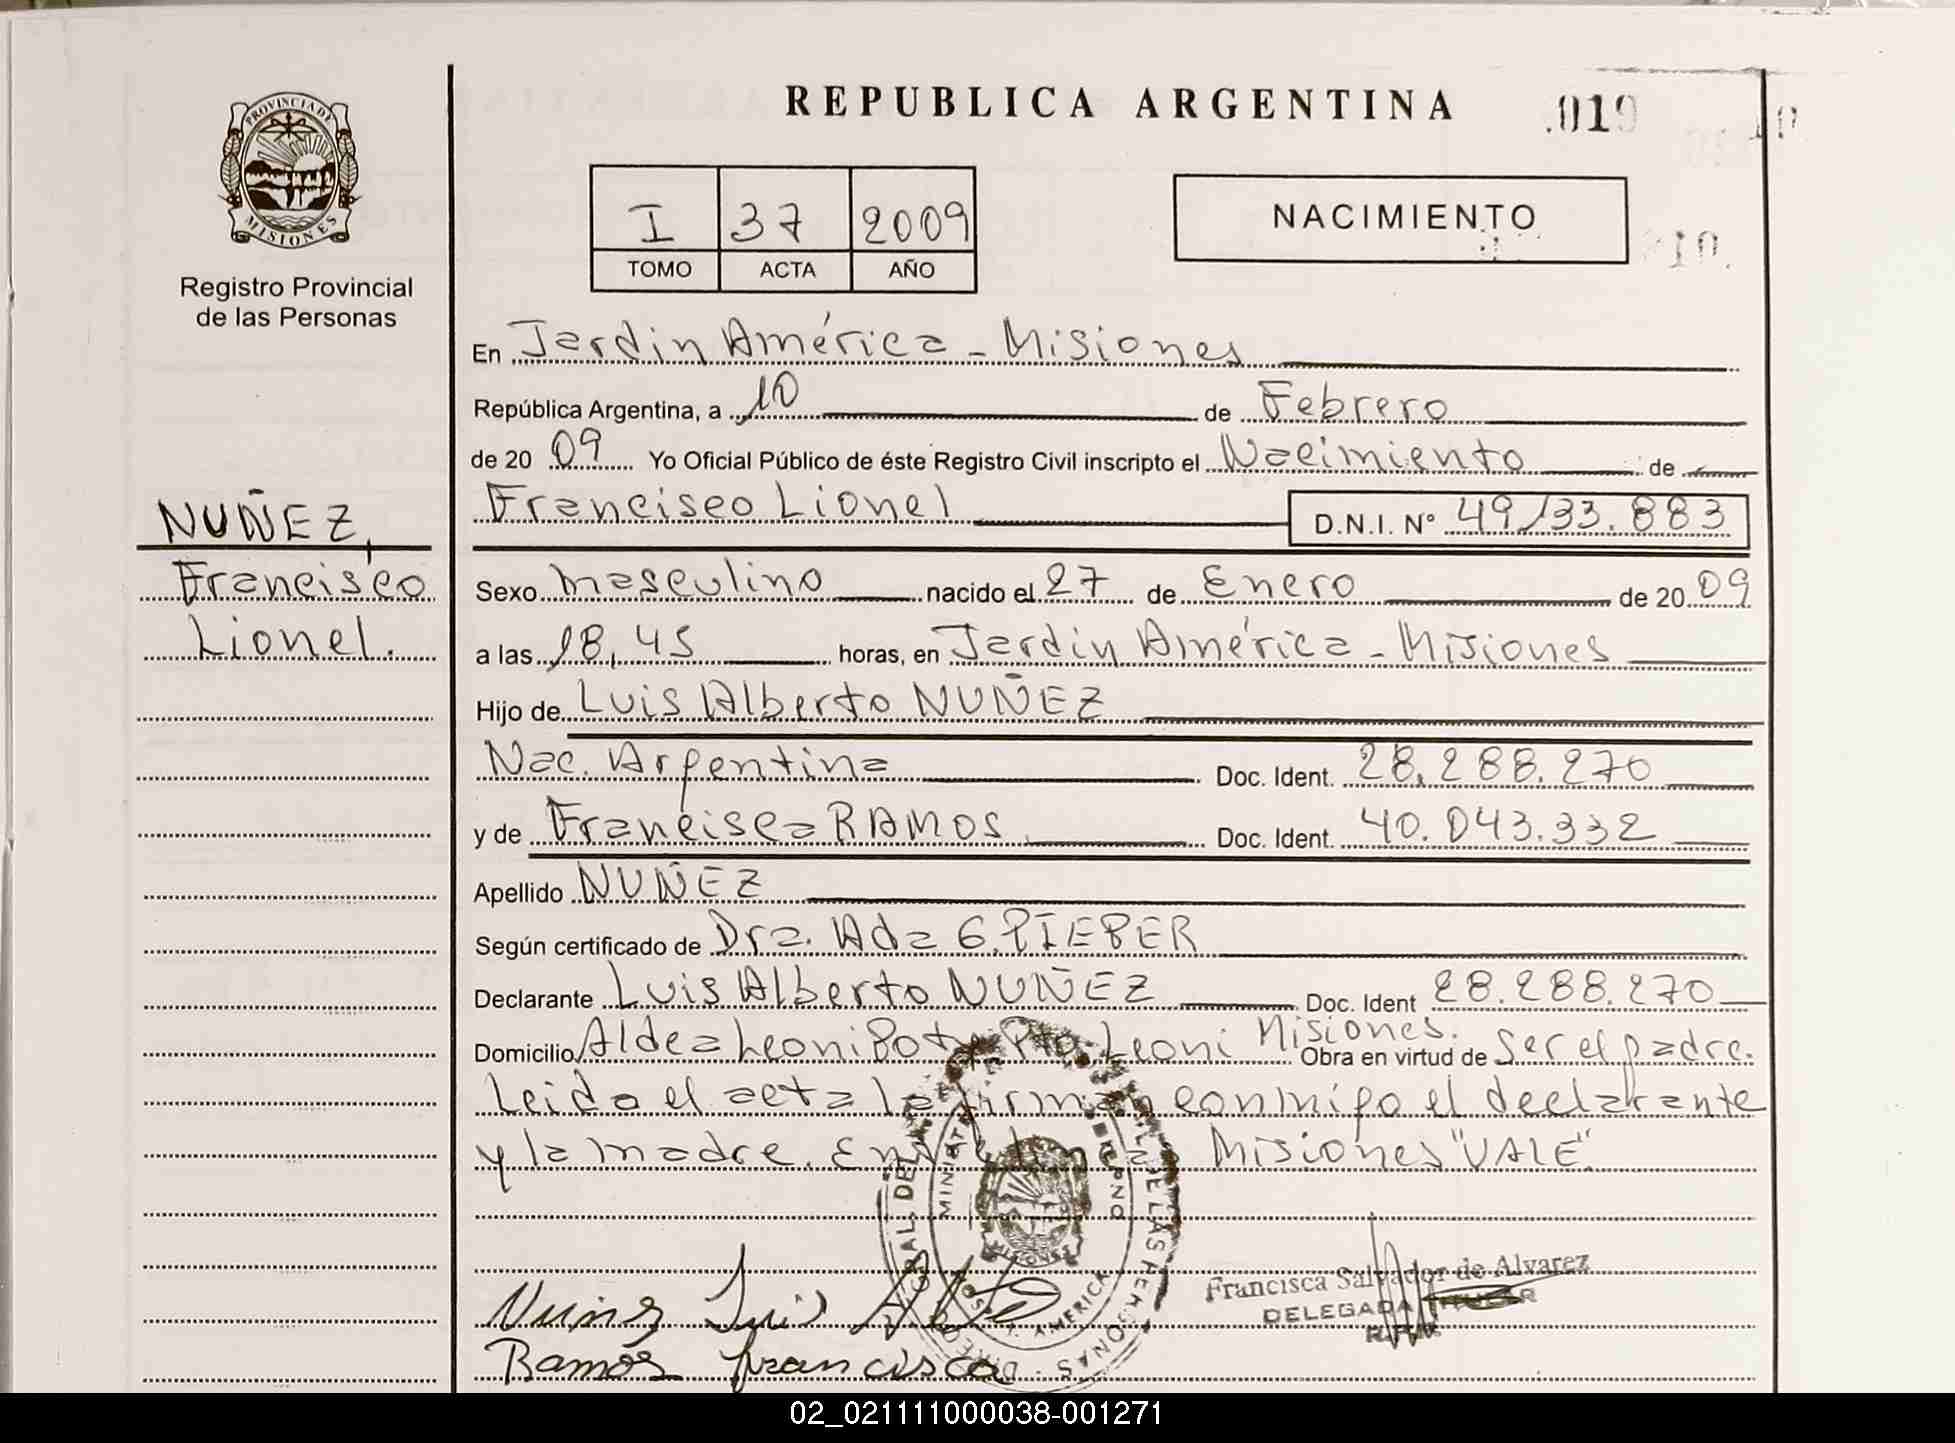 REPUBLICA ARGENTINA
.019
PROVINCIA DE
MISIONES
Registro Provincial
de las Personas
I 37 2009
TOMO ACTA AÑO
NACIMIENTO
En Jardin América - Misiones
República Argentina, a 10 de Febrero
de 2009 Yo Oficial Público de éste Registro Civil inscripto el Nacimiento de
Francisco Lionel D.N.I. Nº 49133.883
NUÑEZ,
Francisco
Lionel.
Sexo Masculino nacido el 27 de Enero de 2009
a las 18,45 horas, en Jardin América - Misiones
Hijo de Luis Alberto NUÑEZ
Nac. Argentina Doc. Ident. 28.288.270
y de Francisca RAMOS Doc. Ident. 40.043.332
Apellido NUÑEZ
Según certificado de Dra. Ada G.
Declarante Luis Alberto NUÑEZ Doc. Ident 28.288.270
Domicilio Aldea Leoni Pto. Leoni Misiones. Obra en virtud de Ser el padre.
Leida el acta la firman conmigo el declarante
y la madre. Misiones "VALE".
Nuñez Luis
Ramos francisca
Francisca Salvador de Alvarez
DELEGADA TITULAR
02_021111000038-001271